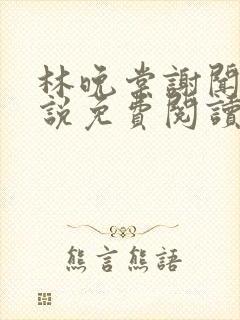 林晚棠謝聞
說免費閱讀
熊言熊語